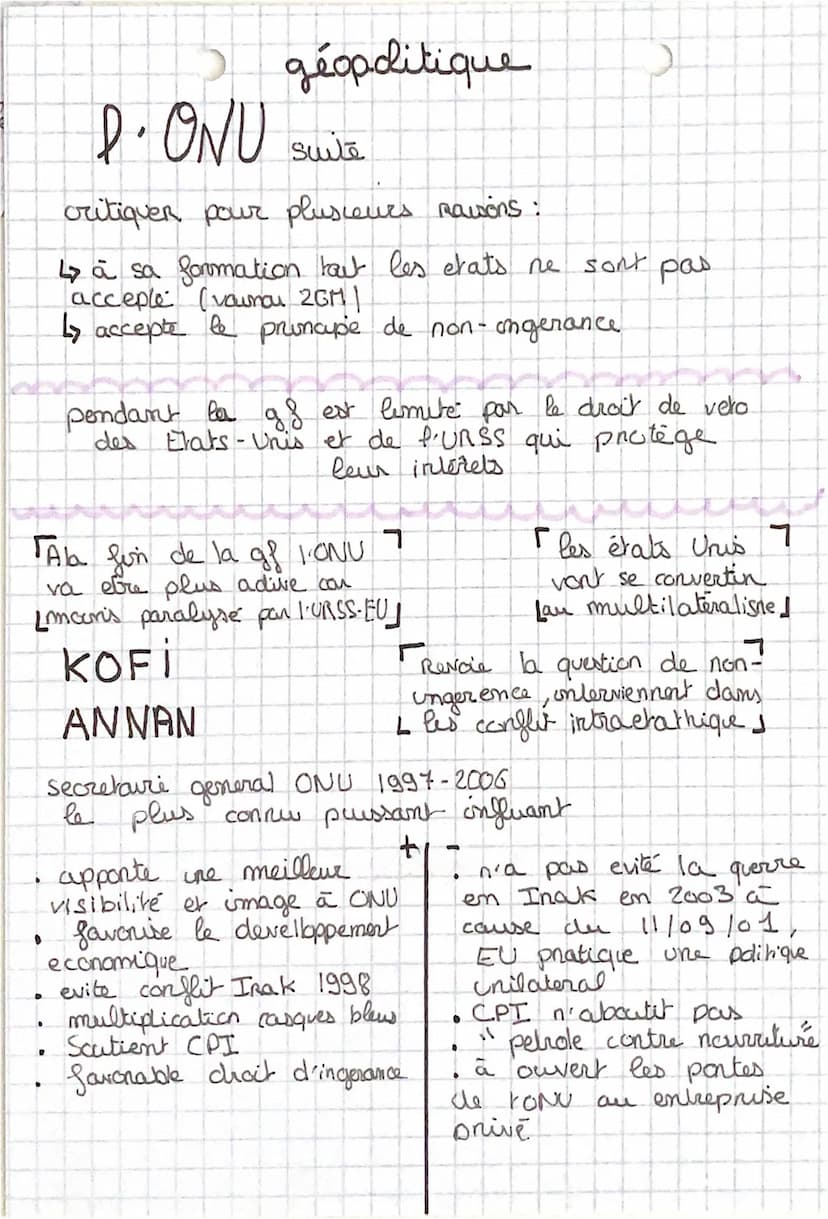 géopolitique
l'ONU suite
critiquer pour plusieurs raisons :
↳ à sa formation tout les etats ne sont pas
accepté (vaincu 2GM)
↳ accepte le principe de non-ingerance
pendant la gf est limité par le droit de veto
des Etats-Unis et de l'URSS qui protège
leur intérets
A la fin de la gf l'ONU
va etre plus active car
moins paralysé par l'URSS-EU
les états Unis
vont se convertir
au multilatéralisme
KOFI
ANNAN
Revoie la question de non-
ingerence, interviennent dans
les conflit intraetathique
secretaire general ONU 1997-2006
le plus connu puissant influant
+
• apporte une meilleur
visibilité et image à ONU
• favorise le develloppement
economique
• evite conflit Irak 1998
• multiplication casques bleus
• Soutient CPI
• favorable droit d'ingerance
-
• n'a pas evité la guerre
en Irak en 2003 à
cause du 11/09/01,
EU pratique une politique
unilateral
• CPI n'aboutit pas
• " petrole contre nourriture
• à ouvert les portes
de l'ONU au entreprise
privé